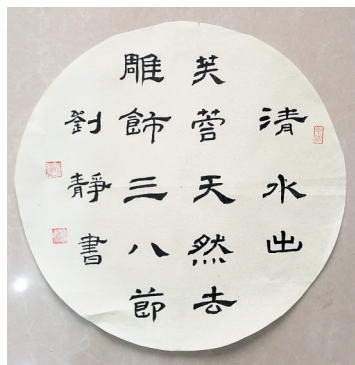 清水出
芙蓉天然去
雕飾三八節
劉靜書